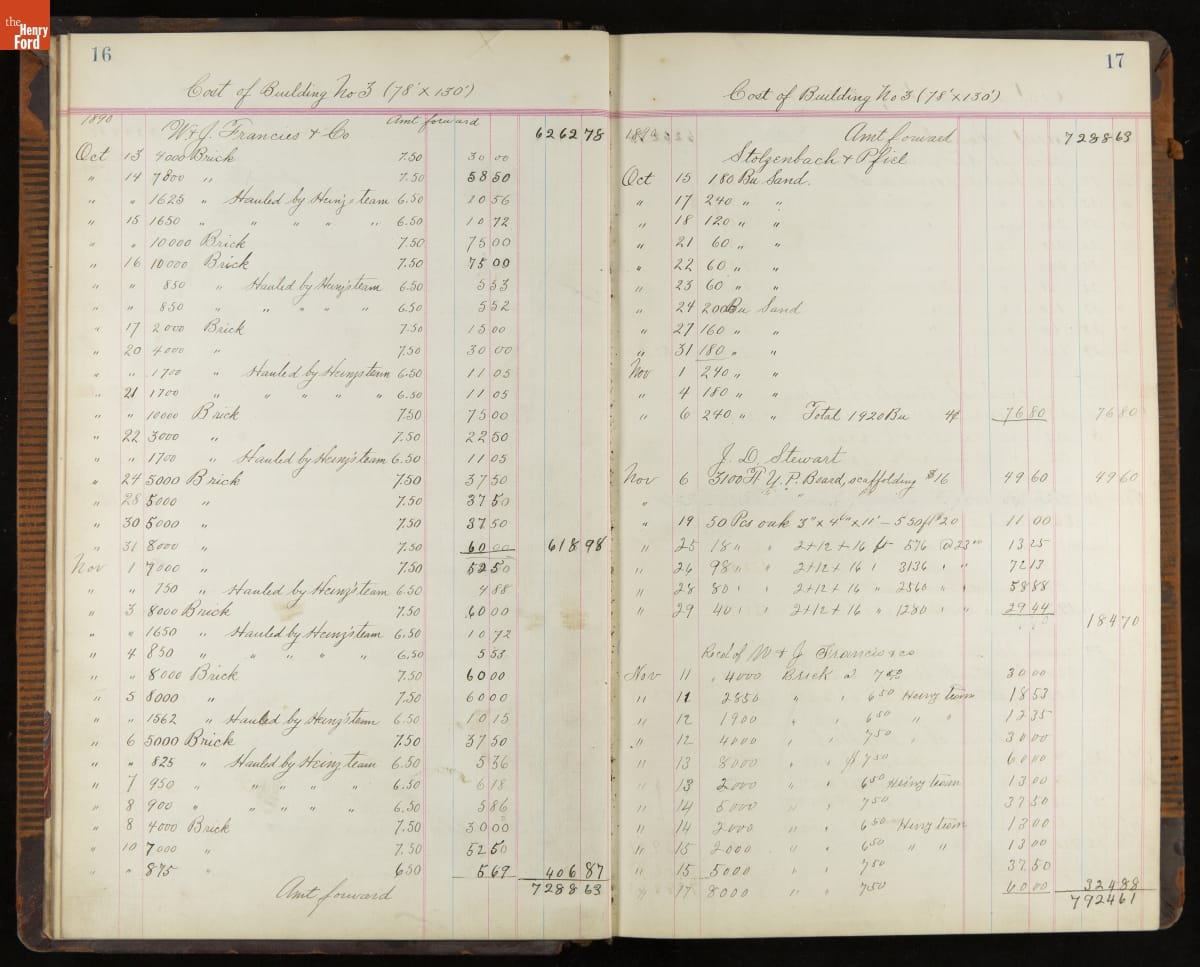 the Henry Ford
16
Cost of Building No 3 (78' x 130')
1890 W & J. Francies & Co Amt forward 6262 78
Oct 13 4000 Brick 7.50 30 00
" 14 7800 " 7.50 58 50
" " 1625 " Hauled by Heinz's team 6.50 10 56
" 15 1650 " " " " " 6.50 10 72
" " 10000 Brick 7.50 75 00
" 16 10000 Brick 7.50 75 00
" " 850 " Hauled by Heinz's team 6.50 5 53
" " 850 " " " " " 6.50 5 52
" 17 2000 Brick 7.50 15 00
" 20 4000 " 7.50 30 00
" " 1700 " Hauled by Heinz's team 6.50 11 05
" 21 1700 " " " " " 6.50 11 05
" " 10000 Brick 7.50 75 00
" 22 3000 " 7.50 22 50
" " 1700 " Hauled by Heinz's team 6.50 11 05
" 24 5000 Brick 7.50 37 50
" 28 5000 " 7.50 37 50
" 30 5000 " 7.50 37 50
" 31 8000 " 7.50 60 00 618 98
Nov 1 7000 " 7.50 52 50
" " 750 " Hauled by Heinz's team 6.50 4 88
" 3 8000 Brick 7.50 60 00
" " 1650 " Hauled by Heinz's team 6.50 10 72
" 4 850 " " " " " 6.50 5 53
" " 8000 Brick 7.50 60 00
" 5 8000 " 7.50 60 00
" " 1562 " Hauled by Heinz's team 6.50 10 15
" 6 5000 Brick 7.50 37 50
" " 825 " Hauled by Heinz team 6.50 5 36
" 7 950 " " " " " 6.50 6 18
" 8 900 " " " " " 6.50 5 86
" 8 4000 Brick 7.50 30 00
" 10 7000 " 7.50 52 50
" " 875 " 6 50 5 69 406 87
Amt forward 7288 63
17
Cost of Building No 3 (78' x 130')
1890 Amt forward 7288 63
Stolzenbach & Pfiel
Oct 15 180 Bu Sand.
" 17 240 " "
" 18 120 " "
" 21 60 " "
" 22 60 " "
" 23 60 " "
" 24 200 Bu Sand
" 27 160 " "
" 31 180 " "
Nov 1 240 " "
" 4 180 " "
" 6 240 " " Total 1920 Bu 4¢ 76 80 76 80
J. D. Stewart
Nov 6 3100 ft Y. P. Board, scaffolding $16 49 60 49 60
"
" 19 50 Pcs oak 3" x 4" x 11' — 550 ft $20 11 00
" 25 18 " " 2 + 12 + 16 ft 576 @ 23 00 13 25
" 26 98 " " 2 + 12 + 16 " 3136 " " 72 13
" 28 80 " " 2 + 12 + 16 " 2560 " " 58 88
" 29 40 " " 2 + 12 + 16 " 1280 " " 29 44
184 70
Rec'd of W & J Francis & co
Nov 11 " 4000 Brick @ 7 50 30 00
" 11 2850 " " 6 50 Heinz team 18 53
" 12 1900 " " 6 50 " " 12 35
" 12 4000 " " 7 50 30 00
" 13 8000 " " 7 50 60 00
" 13 2000 " " 6 50 Heinz team 13 00
" 14 5000 " " 7 50 37 50
" 14 2000 " " 6 50 Heinz team 13 00
" 15 2000 " " 6 50 " " 13 00
" 15 5000 " " 7 50 37 50
" 17 8000 " " 7 50 60 00 324 88
7924 61